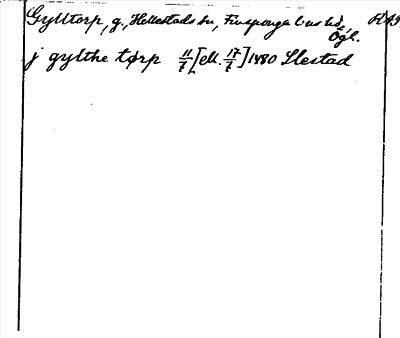 Gylltorp, g., Hellestads sn, Finsponga l:ns hd,
Ögl.
j gylthe tørp 11/7 [ell. 17/7] 1480 Slestad